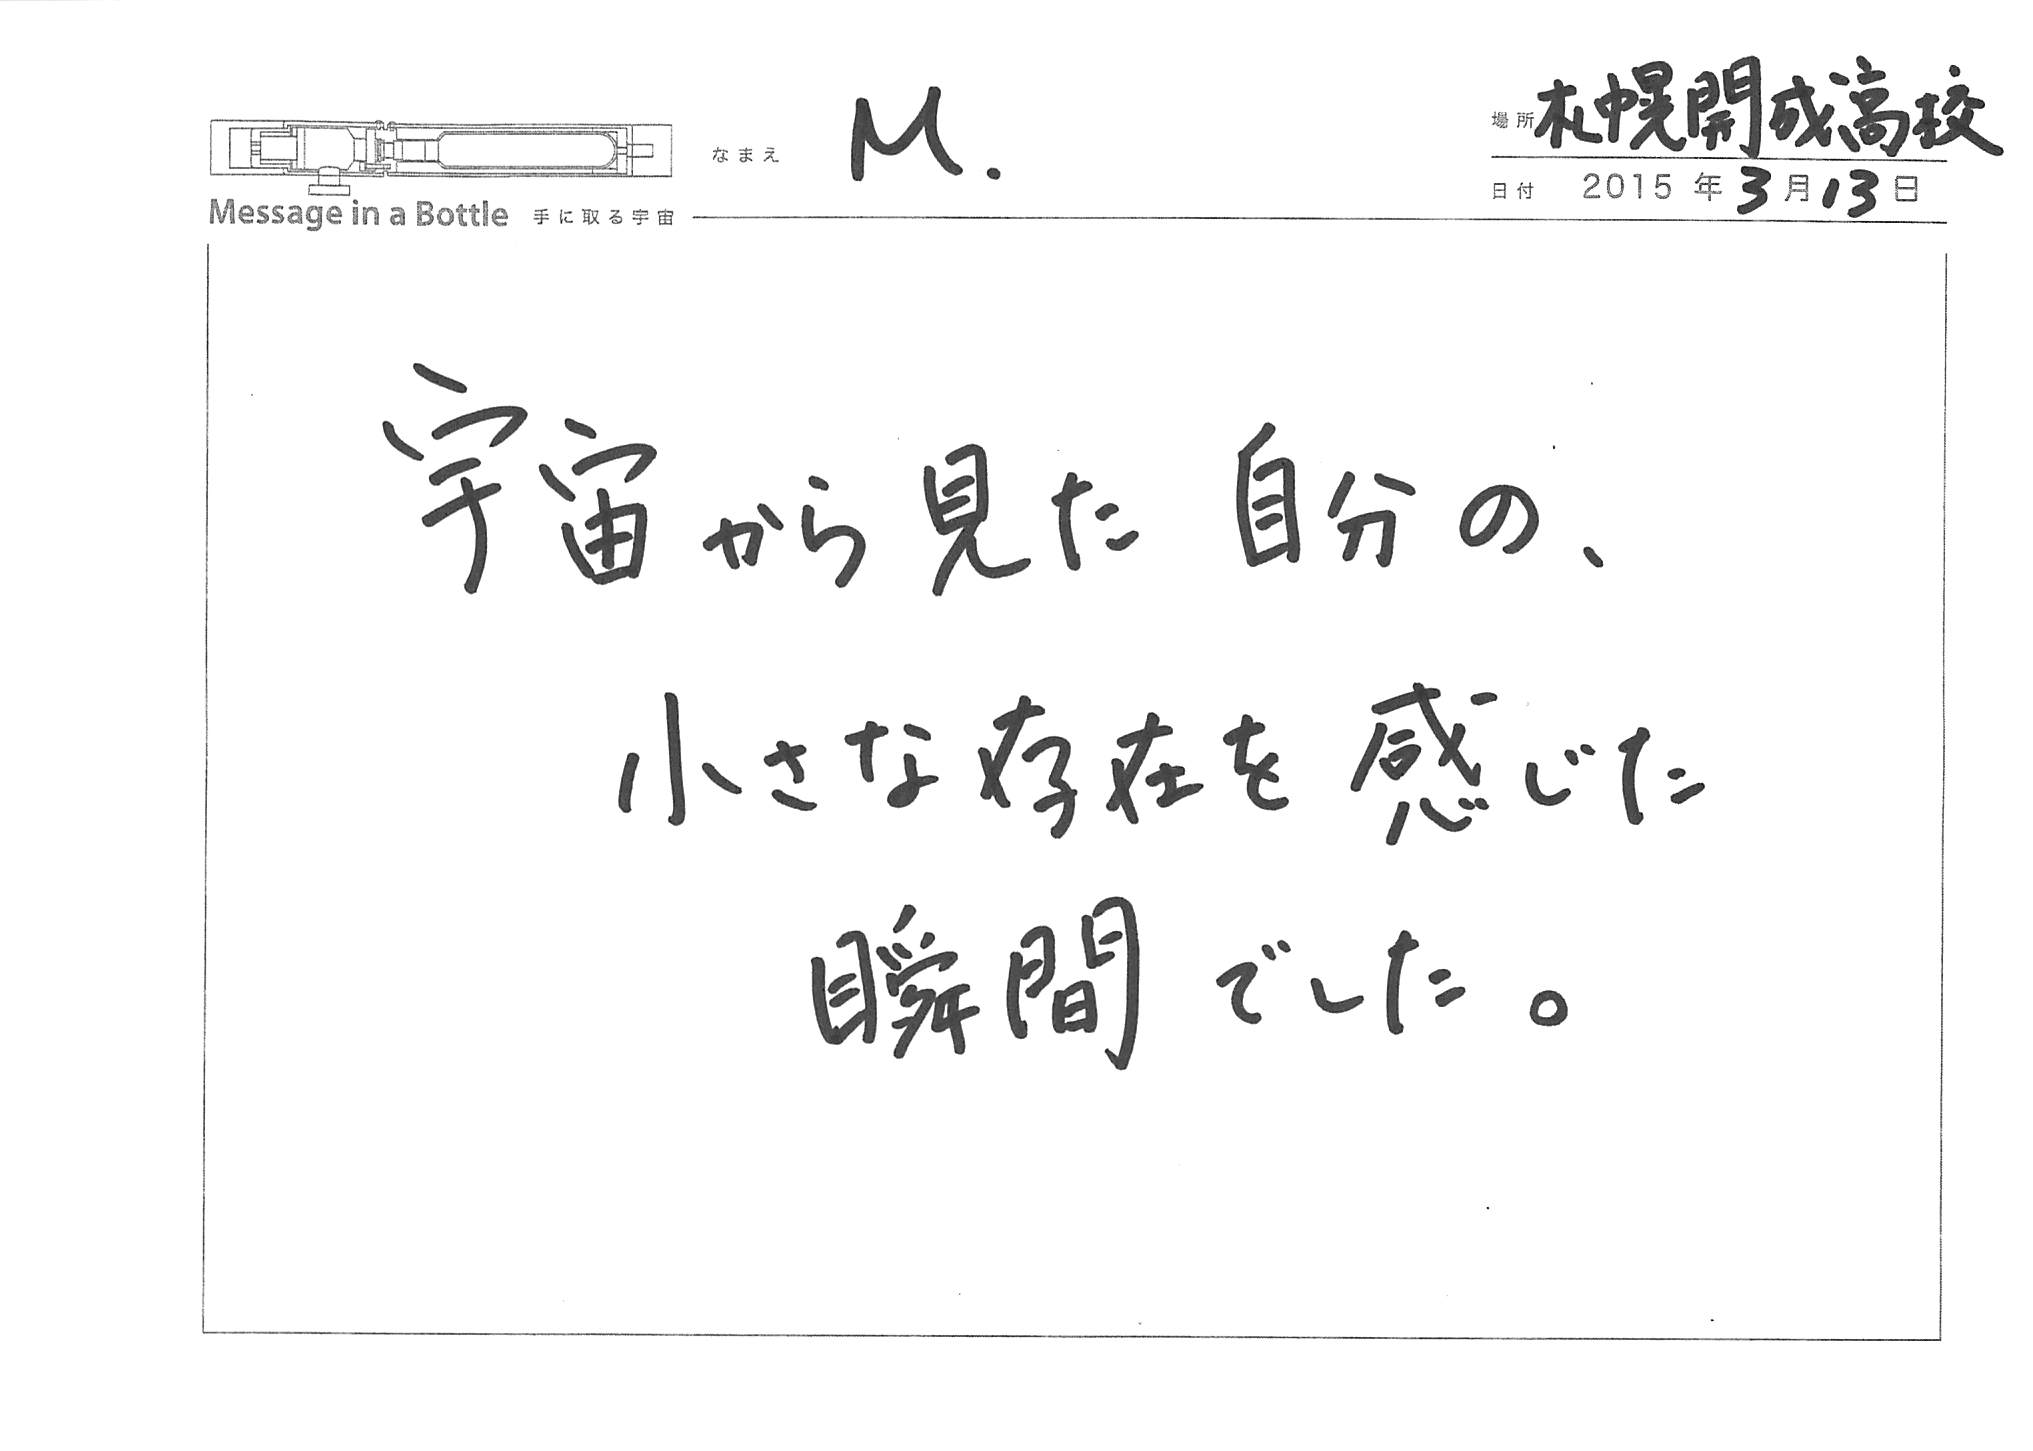 場所 札幌開成高校
なまえ M.
日付 2015 年 3 月 13 日
Message in a Bottle 手に取る宇宙
宇宙から見た 自分の、
小さな存在を 感じた
瞬間でした。